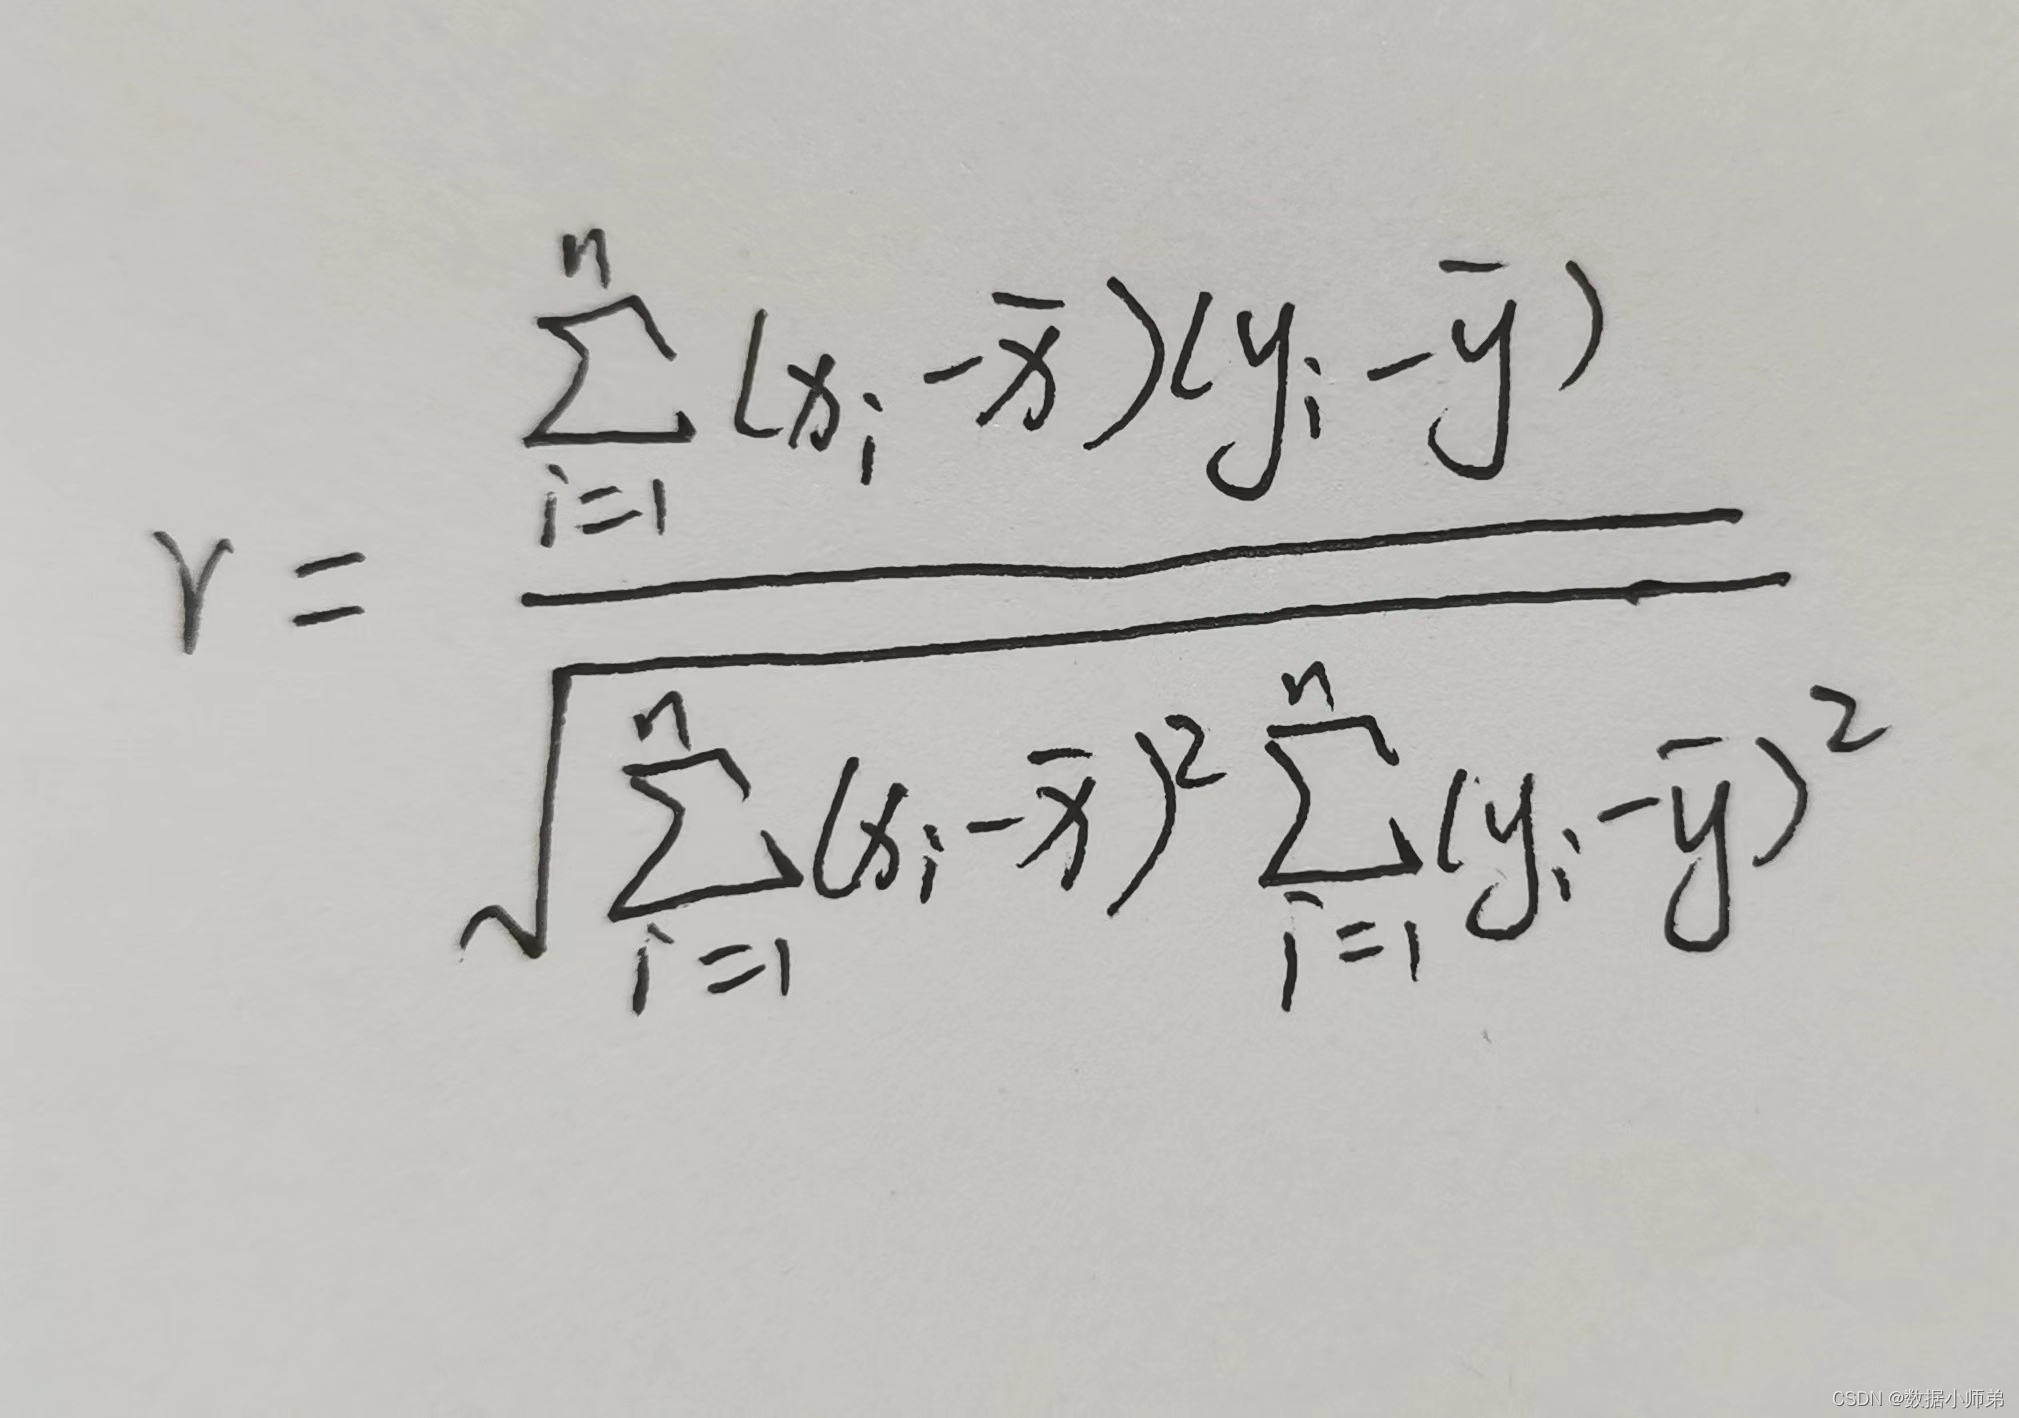 r = \frac{\sum_{i=1}^{n} (x_i - \bar{x})(y_i - \bar{y})}{\sqrt{\sum_{i=1}^{n} (x_i - \bar{x})^2 \sum_{i=1}^{n} (y_i - \bar{y})^2}}
CSDN @数据小师弟